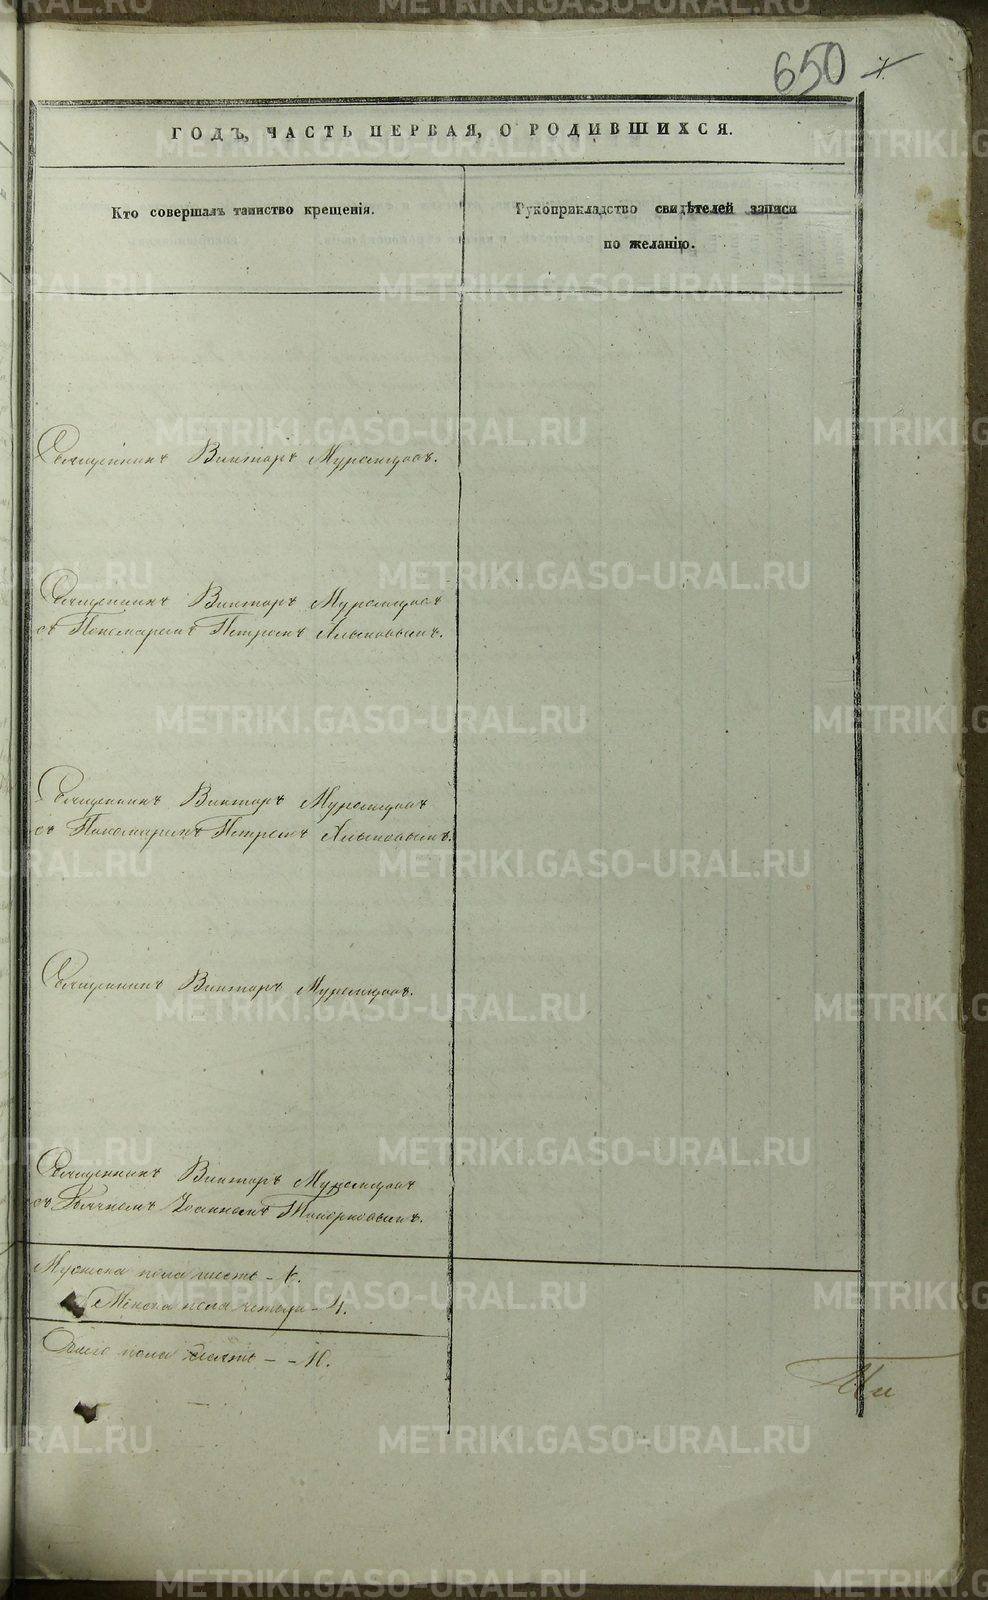 650
ГОДЪ, ЧАСТЬ ПЕРВАЯ, О РОДИВШИХСЯ.
Кто совершалъ таинство крещенія.
Рукоприкладство свидѣтелей записи
по желанію.
Священникъ Викторъ
Священникъ Викторъ
съ Пономаремъ Петромъ
Священникъ Викторъ
съ Пономаремъ Петромъ
Священникъ Викторъ
Священникъ Викторъ
съ Іоанномъ Топорковымъ.
Мужеска пола шесть - 6.
Женска пола четыре - 4.
Обоего пола десять - - 10.
METRIKI.GASO-URAL.RU